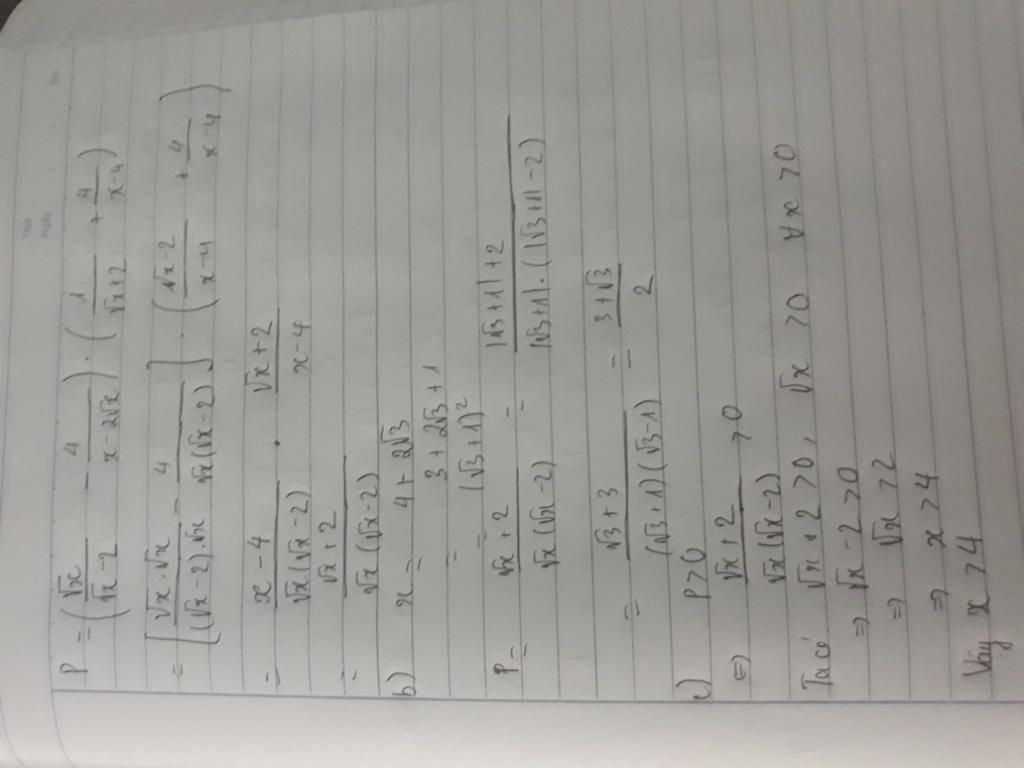 P = (√x/(√x-2) - 4/(x-2√x)) . (1/(√x+2) + 4/(x-4))
= [√x.√x/((√x-2).√x) - 4/(√x(√x-2))] . (√x-2/(x-4) + 4/(x-4))
= (x-4)/(√x(√x-2)) . (√x+2)/(x-4)
= (√x+2)/(√x(√x-2))
b) x = 4+2√3
= 3+2√3+1
= (√3+1)²
P = (√x+2)/(√x(√x-2)) = (|√3+1|+2)/(|√3+1|.(|√3+1|-2))
= (√3+3)/((√3+1)(√3-1)) = (3+√3)/2
c) P>0
⇔ (√x+2)/(√x(√x-2)) >0
Ta có √x+2 >0, √x >0 ∀x >0
⇒ √x-2 >0
⇒ √x >2
⇒ x >4
Vậy x >4